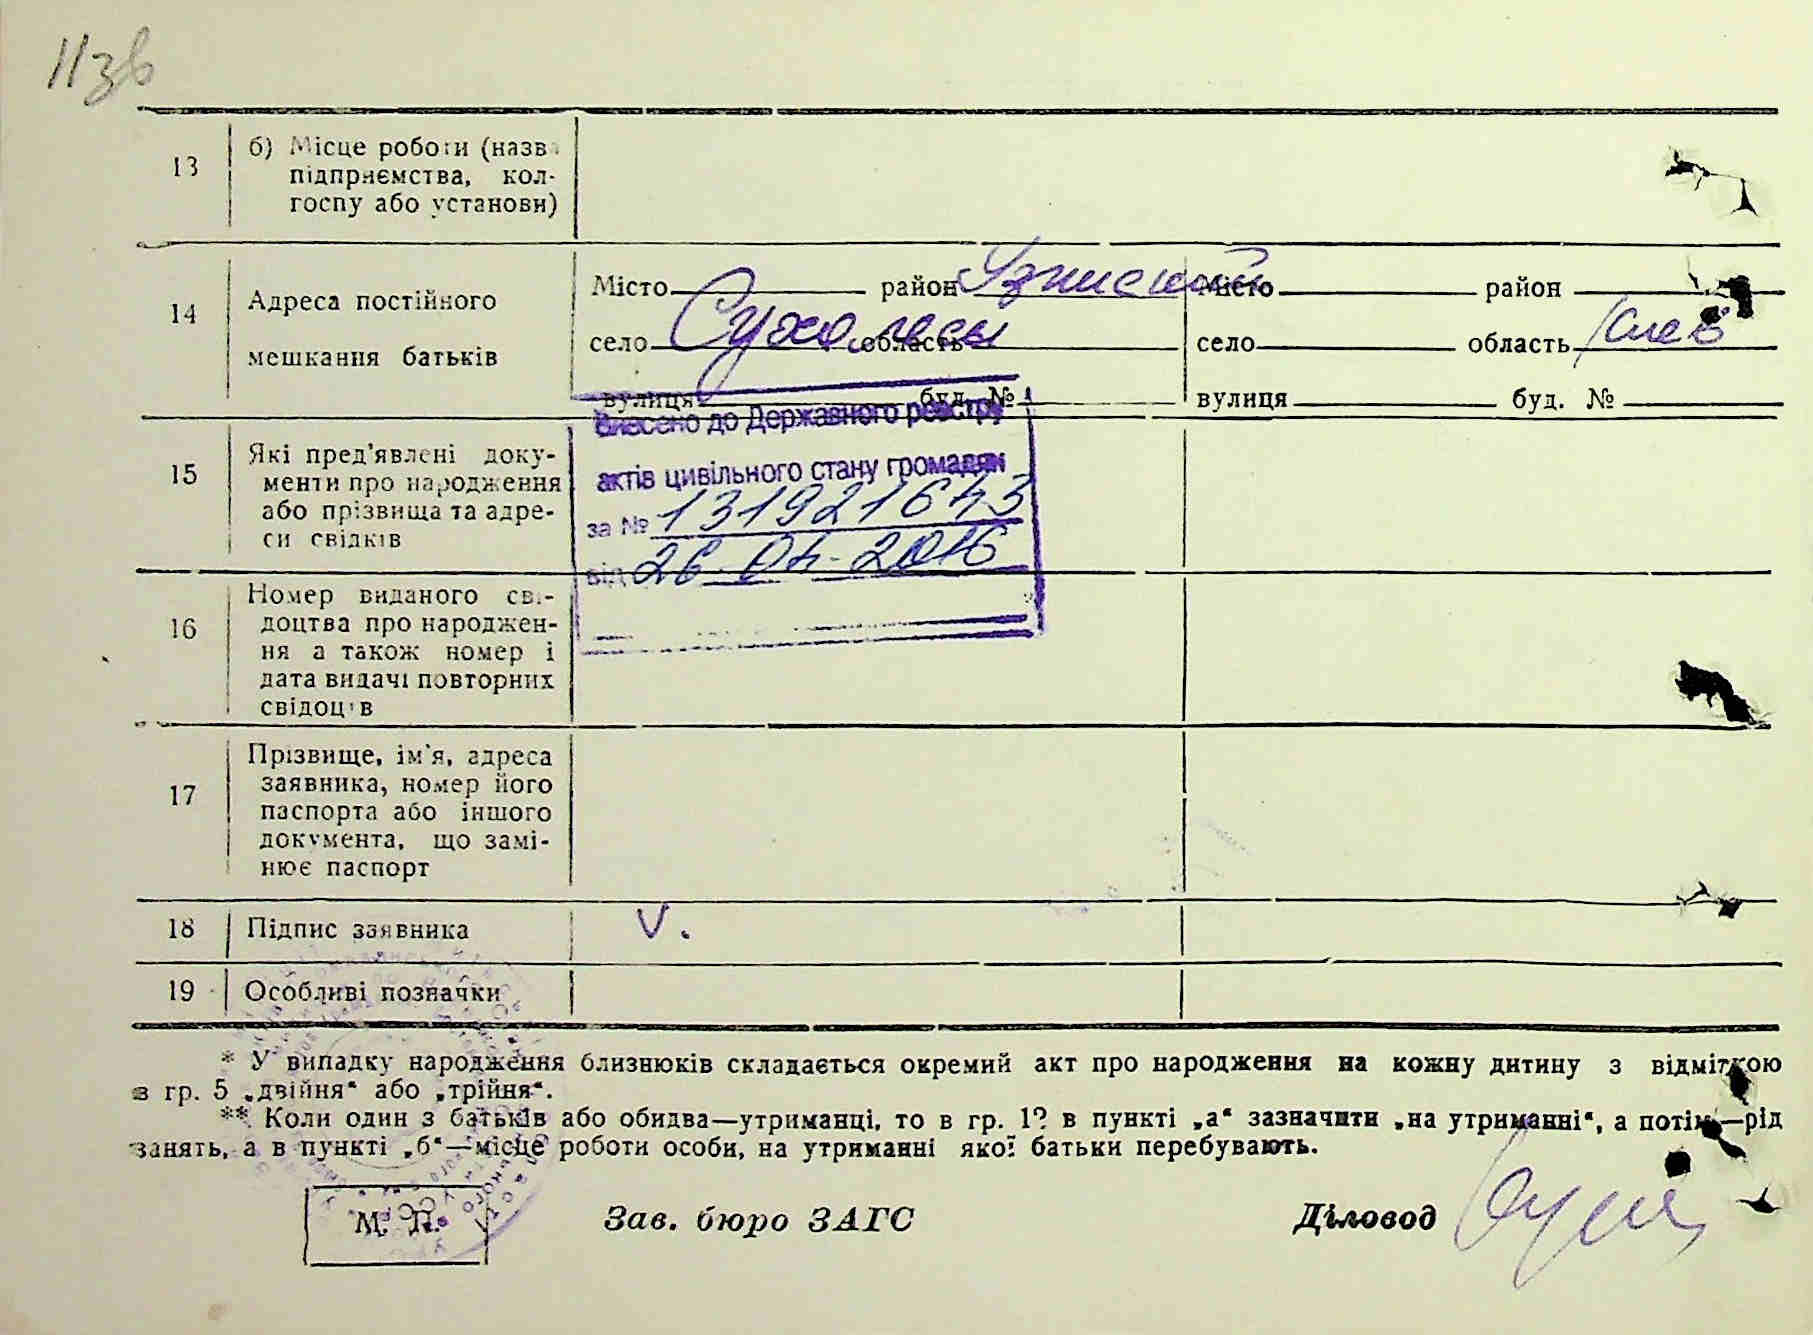 11зв
13 б) Місце роботи (назва
підприємства, кол-
госпу або установи)
14 Адреса постійного
мешкання батьків
Місто район Узинский Місто район
село Сухолесы область село область Киев
вулиця буд. № вулиця буд. №
Внесено до Державного реєстру
актів цивільного стану громадян
за № 131921643
від 26.04.2016
15 Які пред'явлені доку-
менти про народження
або прізвища та адре-
си свідків
16 Номер виданого сві-
доцтва про народжен-
ня а також номер і
дата видачі повторних
свідоцтв
17 Прізвище, ім'я, адреса
заявника, номер його
паспорта або іншого
документа, що замі-
нює паспорт
18 Підпис заявника V.
19 Особливі позначки
* У випадку народження близнюків складається окремий акт про народження на кожну дитину з відміткою
в гр. 5 „двійня“ або „трійня“.
** Коли один з батьків або обидва—утриманці, то в гр. 12 в пункті „а“ зазначити „на утриманні“, а потім—рід
занять, а в пункті „б“—місце роботи особи, на утриманні якої батьки перебувають.
М. П. Зав. бюро ЗАГС Діловод